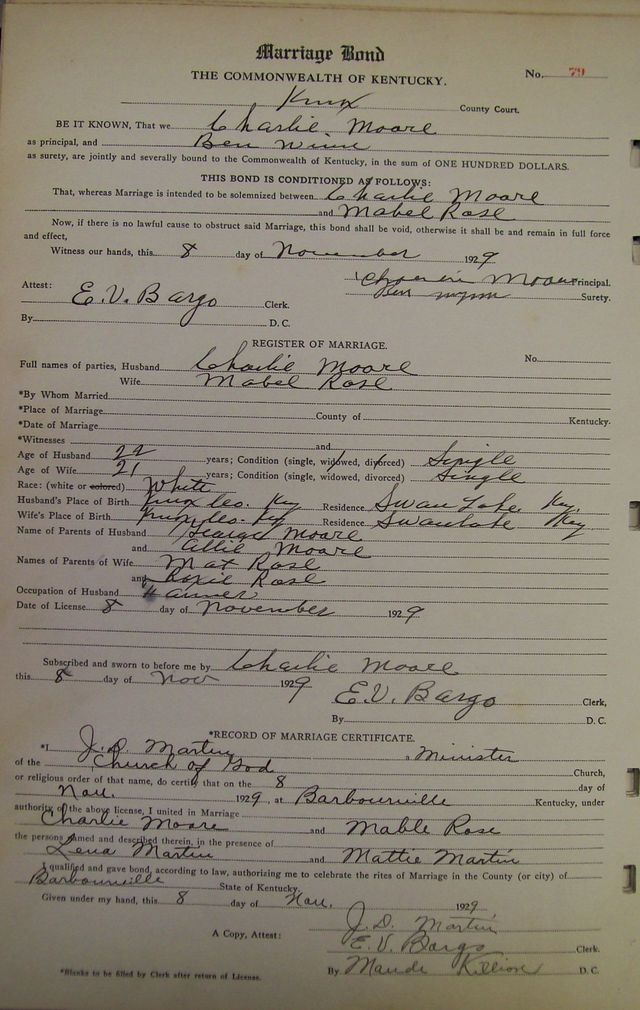 Marriage Bond
THE COMMONWEALTH OF KENTUCKY.
No. 79
Knox County Court.
BE IT KNOWN, That we Charlie Moore
as principal, and Ben Winn
as surety, are jointly and severally bound to the Commonwealth of Kentucky, in the sum of ONE HUNDRED DOLLARS.
THIS BOND IS CONDITIONED AS FOLLOWS:
That, whereas Marriage is intended to be solemnized between Charlie Moore
and Mabel Rose
Now, if there is no lawful cause to obstruct said Marriage, this bond shall be void, otherwise it shall be and remain in full force
and effect,
Witness our hands, this 8 day of November 1929
Moore Principal.
Attest: Ben Surety.
E. V. Bargo Clerk.
By D. C.
REGISTER OF MARRIAGE.
Full names of parties, Husband Charlie Moore No.
Wife Mabel Rose
*By Whom Married
*Place of Marriage County of Kentucky.
*Date of Marriage
*Witnesses and
Age of Husband 22 years; Condition (single, widowed, divorced) Single
Age of Wife 21 years; Condition (single, widowed, divorced) Single
Race: (white or colored) White
Husband's Place of Birth Knox Co. Ky Residence Swan Lake Ky.
Wife's Place of Birth Knox Co. Ky Residence Swan Lake Ky
Name of Parents of Husband George Moore
and Allie Moore
Names of Parents of Wife Mat Rose
and Roxie Rose
Occupation of Husband Farmer
Date of License 8 day of November 1929
Subscribed and sworn to before me by Charlie Moore
this 8 day of Nov 1929
E. V. Bargo Clerk,
By D. C.
*RECORD OF MARRIAGE CERTIFICATE.
*I J. D. Martin a Minister
of the Church of God Church,
or religious order of that name, do certify that on the 8 day of
Nov. 1929, at Barbourville Kentucky, under
authority of the above license, I united in Marriage
Charlie Moore and Mable Rose
the persons named and described therein, in the presence of
Lena Martin and Mattie Martin
I qualified and gave bond, according to law, authorizing me to celebrate the rites of Marriage in the County (or city) of
Barbourville State of Kentucky.
Given under my hand, this 8 day of Nov. 1929
J. D. Martin
A Copy, Attest: E. V. Bargo Clerk.
By Maude Killion D. C.
*Blanks to be filled by Clerk after return of License.